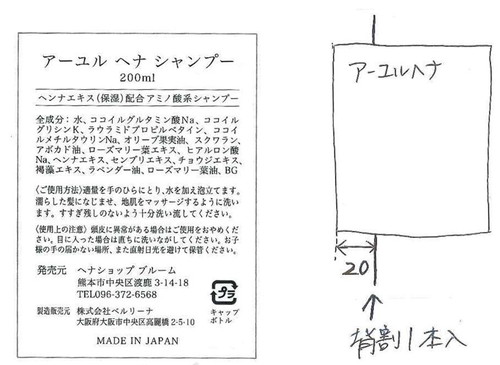 アーユル ヘナ シャンプー
200ml
ヘンナエキス(保湿)配合アミノ酸系シャンプー
全成分：水、ココイルグルタミン酸Na、ココイル
グリシンK、ラウラミドプロピルベタイン、ココイ
ルメチルタウリンNa、オリーブ果実油、スクワラン、
アボカド油、ローズマリー葉エキス、ヒアルロン酸
Na、ヘンナエキス、センブリエキス、チョウジエキス、
褐藻エキス、ラベンダー油、ローズマリー葉油、BG
〈ご使用方法〉適量を手のひらにとり、水を加え泡立てます。
濡らした髪になじませ、地肌をマッサージするように洗い
ます。すすぎ残しのないよう十分洗い流してください。
〈使用上の注意〉頭皮に異常がある場合はご使用をおやめくだ
さい。目に入った場合は直ちに洗いながしてください。お子
様の手の届かない場所、また直射日光を避けて保管ください。
発売元 ヘナショップ ブルーム
熊本市中央区渡鹿 3-14-18
TEL096-372-6568
製造販売元 株式会社ベルリーナ
大阪府大阪市中央区高麗橋 2-5-10
プラ
キャップ
ボトル
MADE IN JAPAN
アーユルヘナ
20
背割1本入